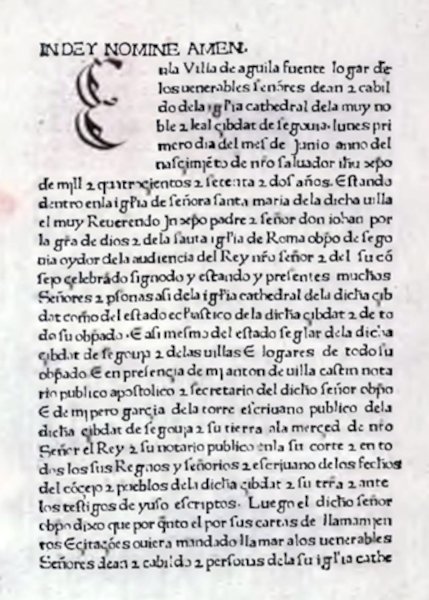 IN DEY NOMINE AMEN.
E nla Villa de aguila fuente logar de
los uenerables señores dean ⁊ cabil
do dela igl̃ia cathedral dela muy no
ble ⁊ leal çibdat de segouia. lunes pri
mero dia del mes de Junio anno del
nasçimiẽto de nr̃o saluador ihũ xp̃o
de mjll ⁊ quatroçientos ⁊ setenta ⁊ dos años. Estando
dentro enla igl̃ia de señora santa maria dela dicha uilla
el muy Reuerendo Jn xp̃o padre ⁊ señor don iohan por
la gr̃a de dios ⁊ dela santa igl̃ia de Roma obp̃o de sego
uia oydor dela audiencia del Rey nr̃o señor ⁊ del su cõ
sejo celebrãdo signodo y estando y presentes muchos
Señores ⁊ p̃sonas asi dela igl̃ia cathedral dela dicha çib
dat como del estado ecl̃iastico dela dicha çibdat ⁊ de to
do su obp̃ado. E asi mesmo del estado seglar dela dicha
çibdat de segouja ⁊ delas uillas E logares de todo su
obp̃ado E en presencia de mj anton de uilla castin nota
rio publico apostolico ⁊ secretario del dicho señor obp̃o
E de mj pero garcia dela torre escriuano publico dela
dicha çibdat de segouja ⁊ su tierra ala merced de nr̃o
Señor el Rey ⁊ su notario publico enla su corte ⁊ en to
dos los sus Regnos y señorios ⁊ escriuano de los fechos
del cõcejo ⁊ pueblos dela dicha çibdat ⁊ su tr̃ra ⁊ ante
los testigos de yuso escriptos. Luego el dicho señor
obp̃o dixo que por q̃nto el por sus cartas de llamamjen
tos E citações ouiera mandado llamar alos uenerables
Señores dean ⁊ cabildo ⁊ personas dela su igl̃ia cathe